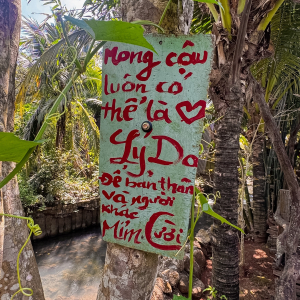 Mong cậu
luôn có
thể là ♡
Lý Do
Để bản thân
và người
khác
Mỉm Cười